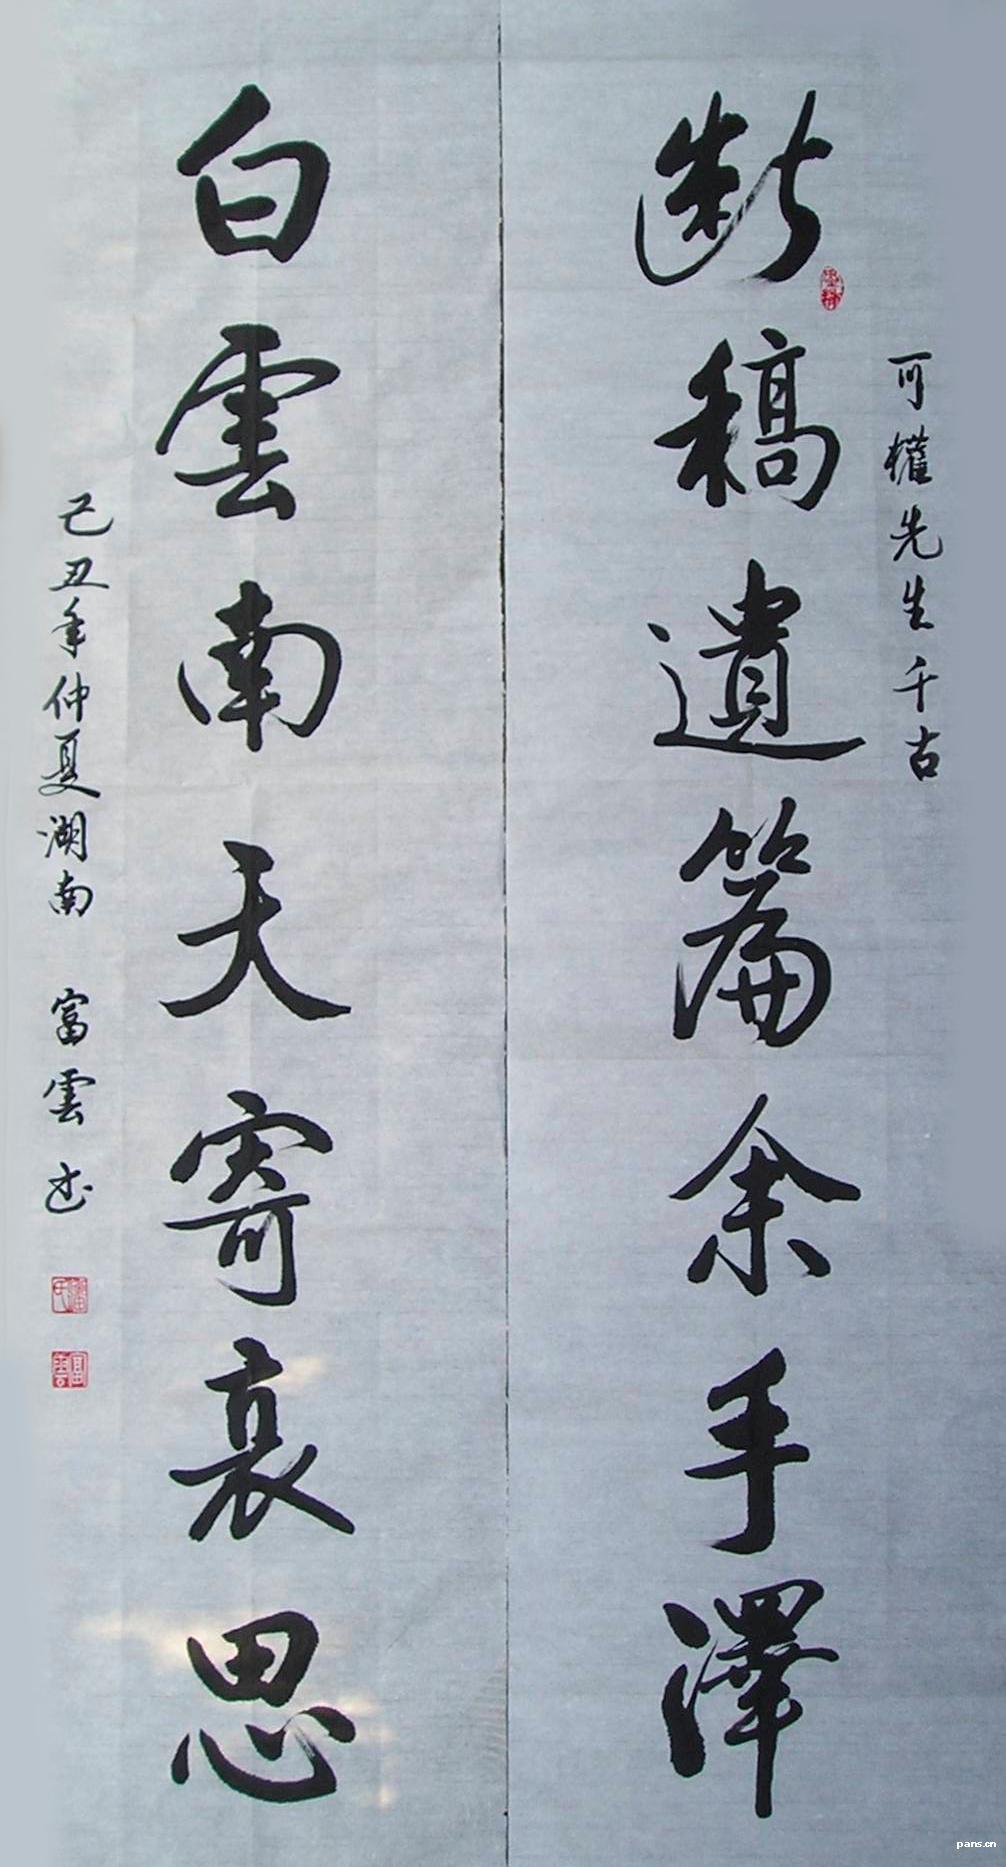 可權先生千古
断稿遺篇余手澤
白雲南天寄哀思
己丑年仲夏湖南 富雲书
富雲
pans.cn